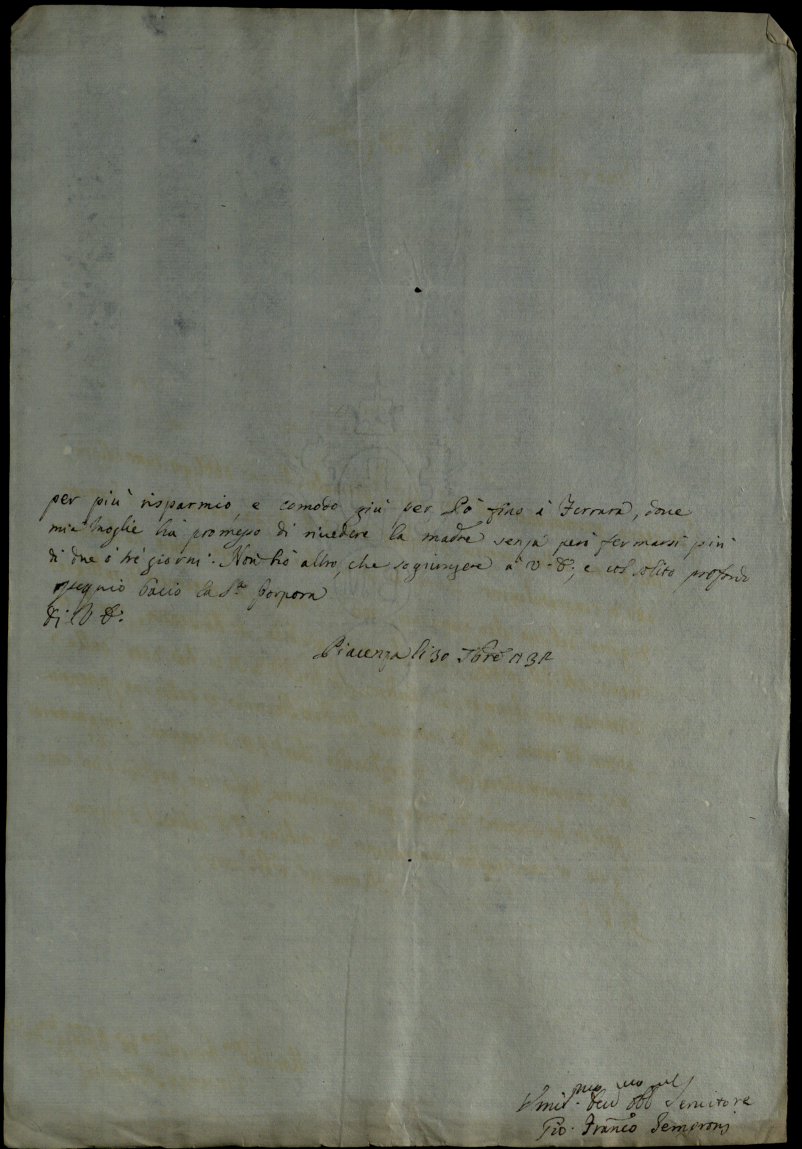 per più risparmio, e comodo giù per Pò fino à Ferrara, dove
mia Moglie hà promesso di rivedere la madre senza però fermarsi più
di due ò trè giorni. Non hò altro, che sogiungere à V. E.; e col solito profondo
ossequio bacio la S.ª Porpora
Di V. E.
Piacenza li 30
Umil.mo dev.mo obb.
Servitore
Gio. Franc.o